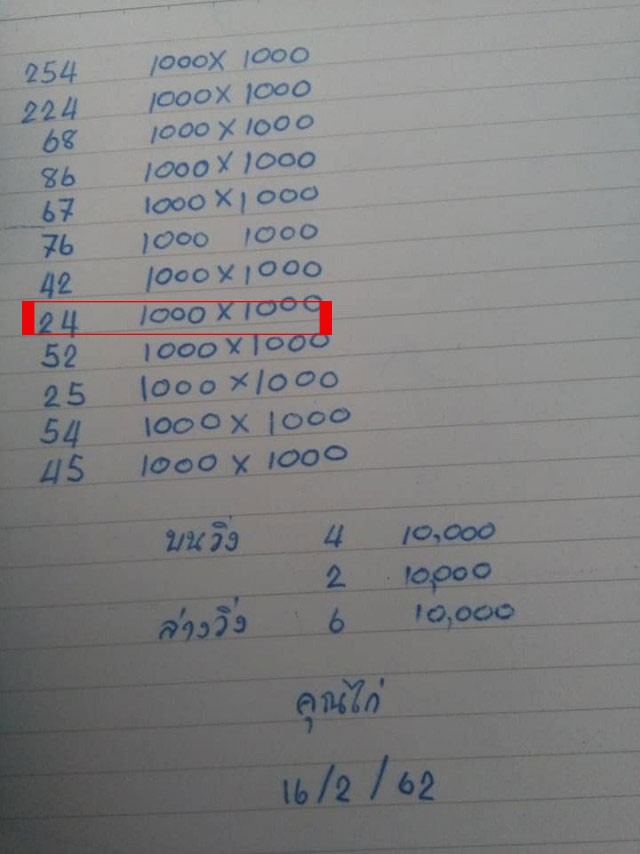 254 1000X 1000
224 1000X 1000
68 1000X1000
86 1000X1000
67 1000X1000
76 1000 1000
42 1000X1000
24 1000X1000
52 1000X1000
25 1000X1000
54 1000X 1000
45 1000X 1000
บนวิ่ง 4 10,000
2 10,000
ล่างวิ่ง 6 10,000
คุณไก่
16/2/62